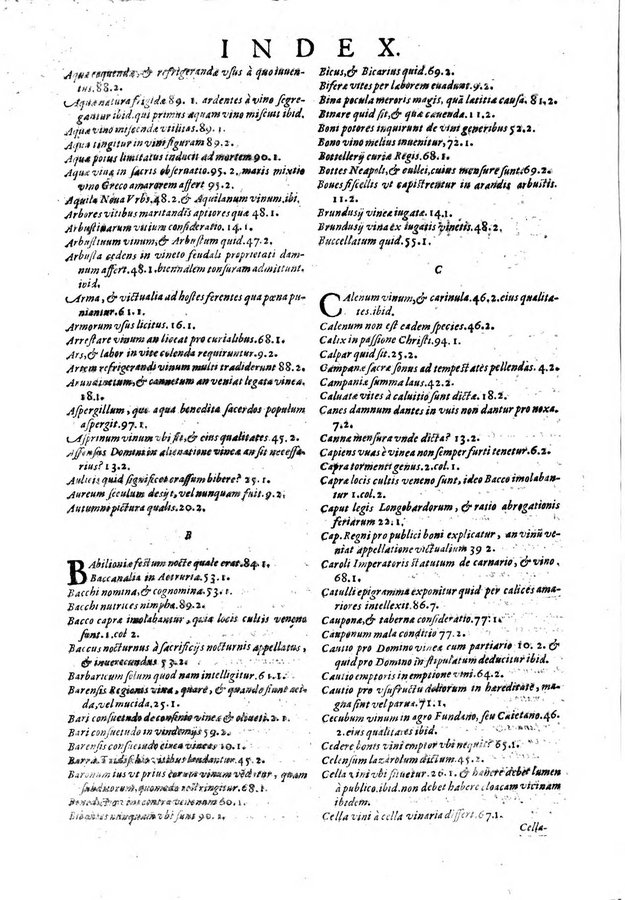 INDEX.
Aquæ coquendæ, & refrigerandæ vsus à quo inuen-
tus. 88.2.
Aquæ natura frigida 89. 1. ardentes à vino segre-
gantur ibid. qui primus aquam vino miscuit ibid.
Aquæ vino miscendæ vtilitas. 89.1.
Aqua tingitur in vini figuram 89.2.
Aquæ potus limitatus inducit ad mortem 90.1.
Aquæ viuæ in sacris obseruatio. 95.2. maris mixtio
vino Greco amarorem affert 95.2.
Aquila Noua Vrbs. 48.2. & Aquilanum vinum. ibi.
Arbores vitibus maritandis aptiores quæ 48.1.
Arbustinarum vitium consideratio. 14.1.
Arbustiuum vinum, & Arbustum quid. 47.2.
Arbusta cedens in vineto feudali proprietati dam-
num affert. 48.1. biennalem tonsuram admittunt.
ibid.
Arma, & victualia ad hostes ferentes qua pœna pu-
niantur. 61.1.
Armorum vsus licitus. 16.1.
Arrestare vinum an liceat pro curialibus. 68.1.
Ars, & labor in vite colenda requiruntur. 9.2.
Artem refrigerandi vinum multi tradiderunt 88.2.
Arundinetum, & cannetum an veniat legata vinea.
18.1.
Aspergillum, quo aqua benedicta sacerdos populum
aspergit. 97.1.
Asprinum vinum vbi fit, & eius qualitates. 45.2.
Assensus Domini in alienatione vineæ an sit necessa-
rius? 13.2.
Aulicis quid significet crassum bibere? 25.1.
Aureum seculum desijt, vel nunquam fuit. 9.2.
Autumno pictura qualis. 20.2.
B
BAbiloniæ festum nocte quale erat. 84.1.
Baccanalia in Aetruria. 53.1.
Bacchi nomina, & cognomina. 53.1.
Bacchi nutrices nimphæ. 89.2.
Bacco capræ imolabantur, quia locis cultis veneno
sunt. 1. col 2.
Baccus nocturnus à sacrificijs nocturnis appellatus,
& inuerecundus 53.2.
Barbaricum solum quod nam intelligitur. 61.1.
Barensis Regionis vina, quare, & quando fiunt aci-
da, vel mucida. 25.1.
Bari consuetudo de consenio vineæ & oliueti. 2.1.
Bari consuetudo in vindemijs 59.2.
Barensis consuetudo circa vineas 10.1.
vitibus laudantur. 45.2.
Baronum ius vt prius eorum vinum vendatur, quam
subditorum, quomodo restringitur. 68.1.
contra venenum 60.1.
vbi sunt 90.2.
Bicus, & Bicarius quid. 69.2.
Biferæ vites per laborem euadunt. 9.2.
Bina pocula meroris magis, quã lætitiæ causa. 81.2.
Binare quid sit, & quæ cauenda. 11.2.
Boni potores inquirunt de vini generibus 52.2.
Bono vino melius inuenitur, 72.1.
Bottellerij curiæ Regis. 68.1.
Bottes Neapoli, & cullei, cuius mensuræ sunt. 69.2.
Boues fiscellis vt capistrentur in arandis arbustis.
11.2.
Brundusij vinea iugata. 14.1.
Brundusij vinea ex iugatis vinetis. 48.2.
Buccellatum quid. 55.1.
C
CAlenum vinum, & carinula. 46.2. eius qualita-
tes. ibid.
Calenum non est eadem species. 46.2.
Calix in passione Christi. 94.1.
Calpar quid sit. 25.2.
Campanæ sacræ sonus ad tempestates pellendas. 4.2.
Campaniæ summa laus. 42.2.
Caluatæ vites à caluitio sunt dictæ. 18.2.
Canes damnum dantes in vuis non dantur pro noxa
7.2.
Canna mensura vnde dicta? 13.2.
Capiens vuas à vinea non semper furti tenetur. 6.2.
Capra tormenti genus. 2. col. 1.
Capræ locis cultis veneno sunt, ideo Bacco imolaban-
tur 1. col. 2.
Caput legis Longobardorum, & ratio abrogationis
feriarum 22:1.
Cap. Regni pro publici boni explicatur, an vinũ ve-
niat appellatione victualium 39 2.
Caroli Imperatoris statutum de carnario, & vino,
68.1.
Catulli epigramma exponitur quid per calices ama-
riores intellexit. 86.7.
Caupona, & tabernæ consideratio. 77:1.
Cauponum mala conditio 77.2.
Cautio pro Domino vineæ cum partiario 10.2. &
quid pro Domino in stipulatum deducitur ibid.
Cautio emptoris in emptione vini. 64.2.
Cautio pro vsufructu doliorum in hæreditate, ma-
gna sint vel parua. 71.1.
Cecubum vinum in agro Fundano, seu Caietano. 46.
2. eius qualitates ibid.
Cedere bonis vini emptor vbi nequit 65.1.
Celensum lazarolum dictum. 45.2.
Cella vini vbi situetur. 26.1. & habere debet lumen
à publico. ibid. non debet habere cloacam vicinam
ibidem.
Cella vini à cella vinaria differt. 67.1.
Cella-